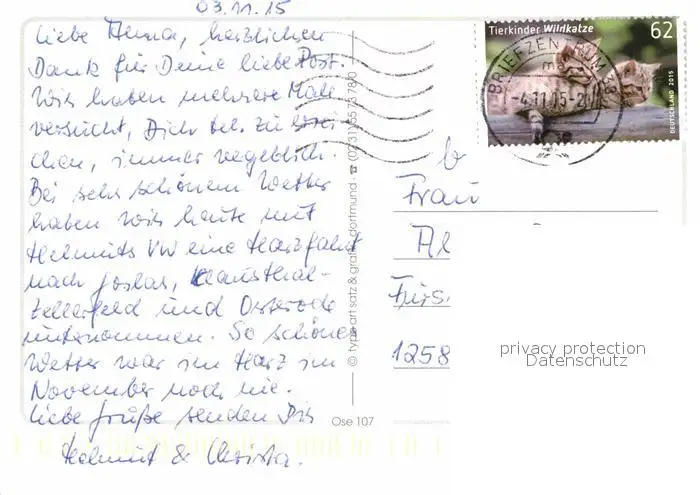 03.11.15
Liebe Anna, herzlichen
Dank für Deine liebe Post.
Wir haben mehrere Male
versucht, Dich tel. zu errei-
chen, immer vergeblich.
Bei sehr schönem Wetter
haben wir heute mit
Helmuts VW eine Harzfahrt
nach Goslar, Clausthal-
Zellerfeld und Osterode
unternommen. So schönes
Wetter war im Harz im
November noch nie.
Liebe Grüße senden Dir
Helmut & Christa.
Ose 107
© typo art satz & grafik dortmund · ☎ (02 31) 55 73 78/0
Tierkinder Wildkatze 62
DEUTSCHLAND 2015
BRIEFZENTRUM
-4.11.15-20
Frau
Al
Fürs
1258
privacy protection
Datenschutz